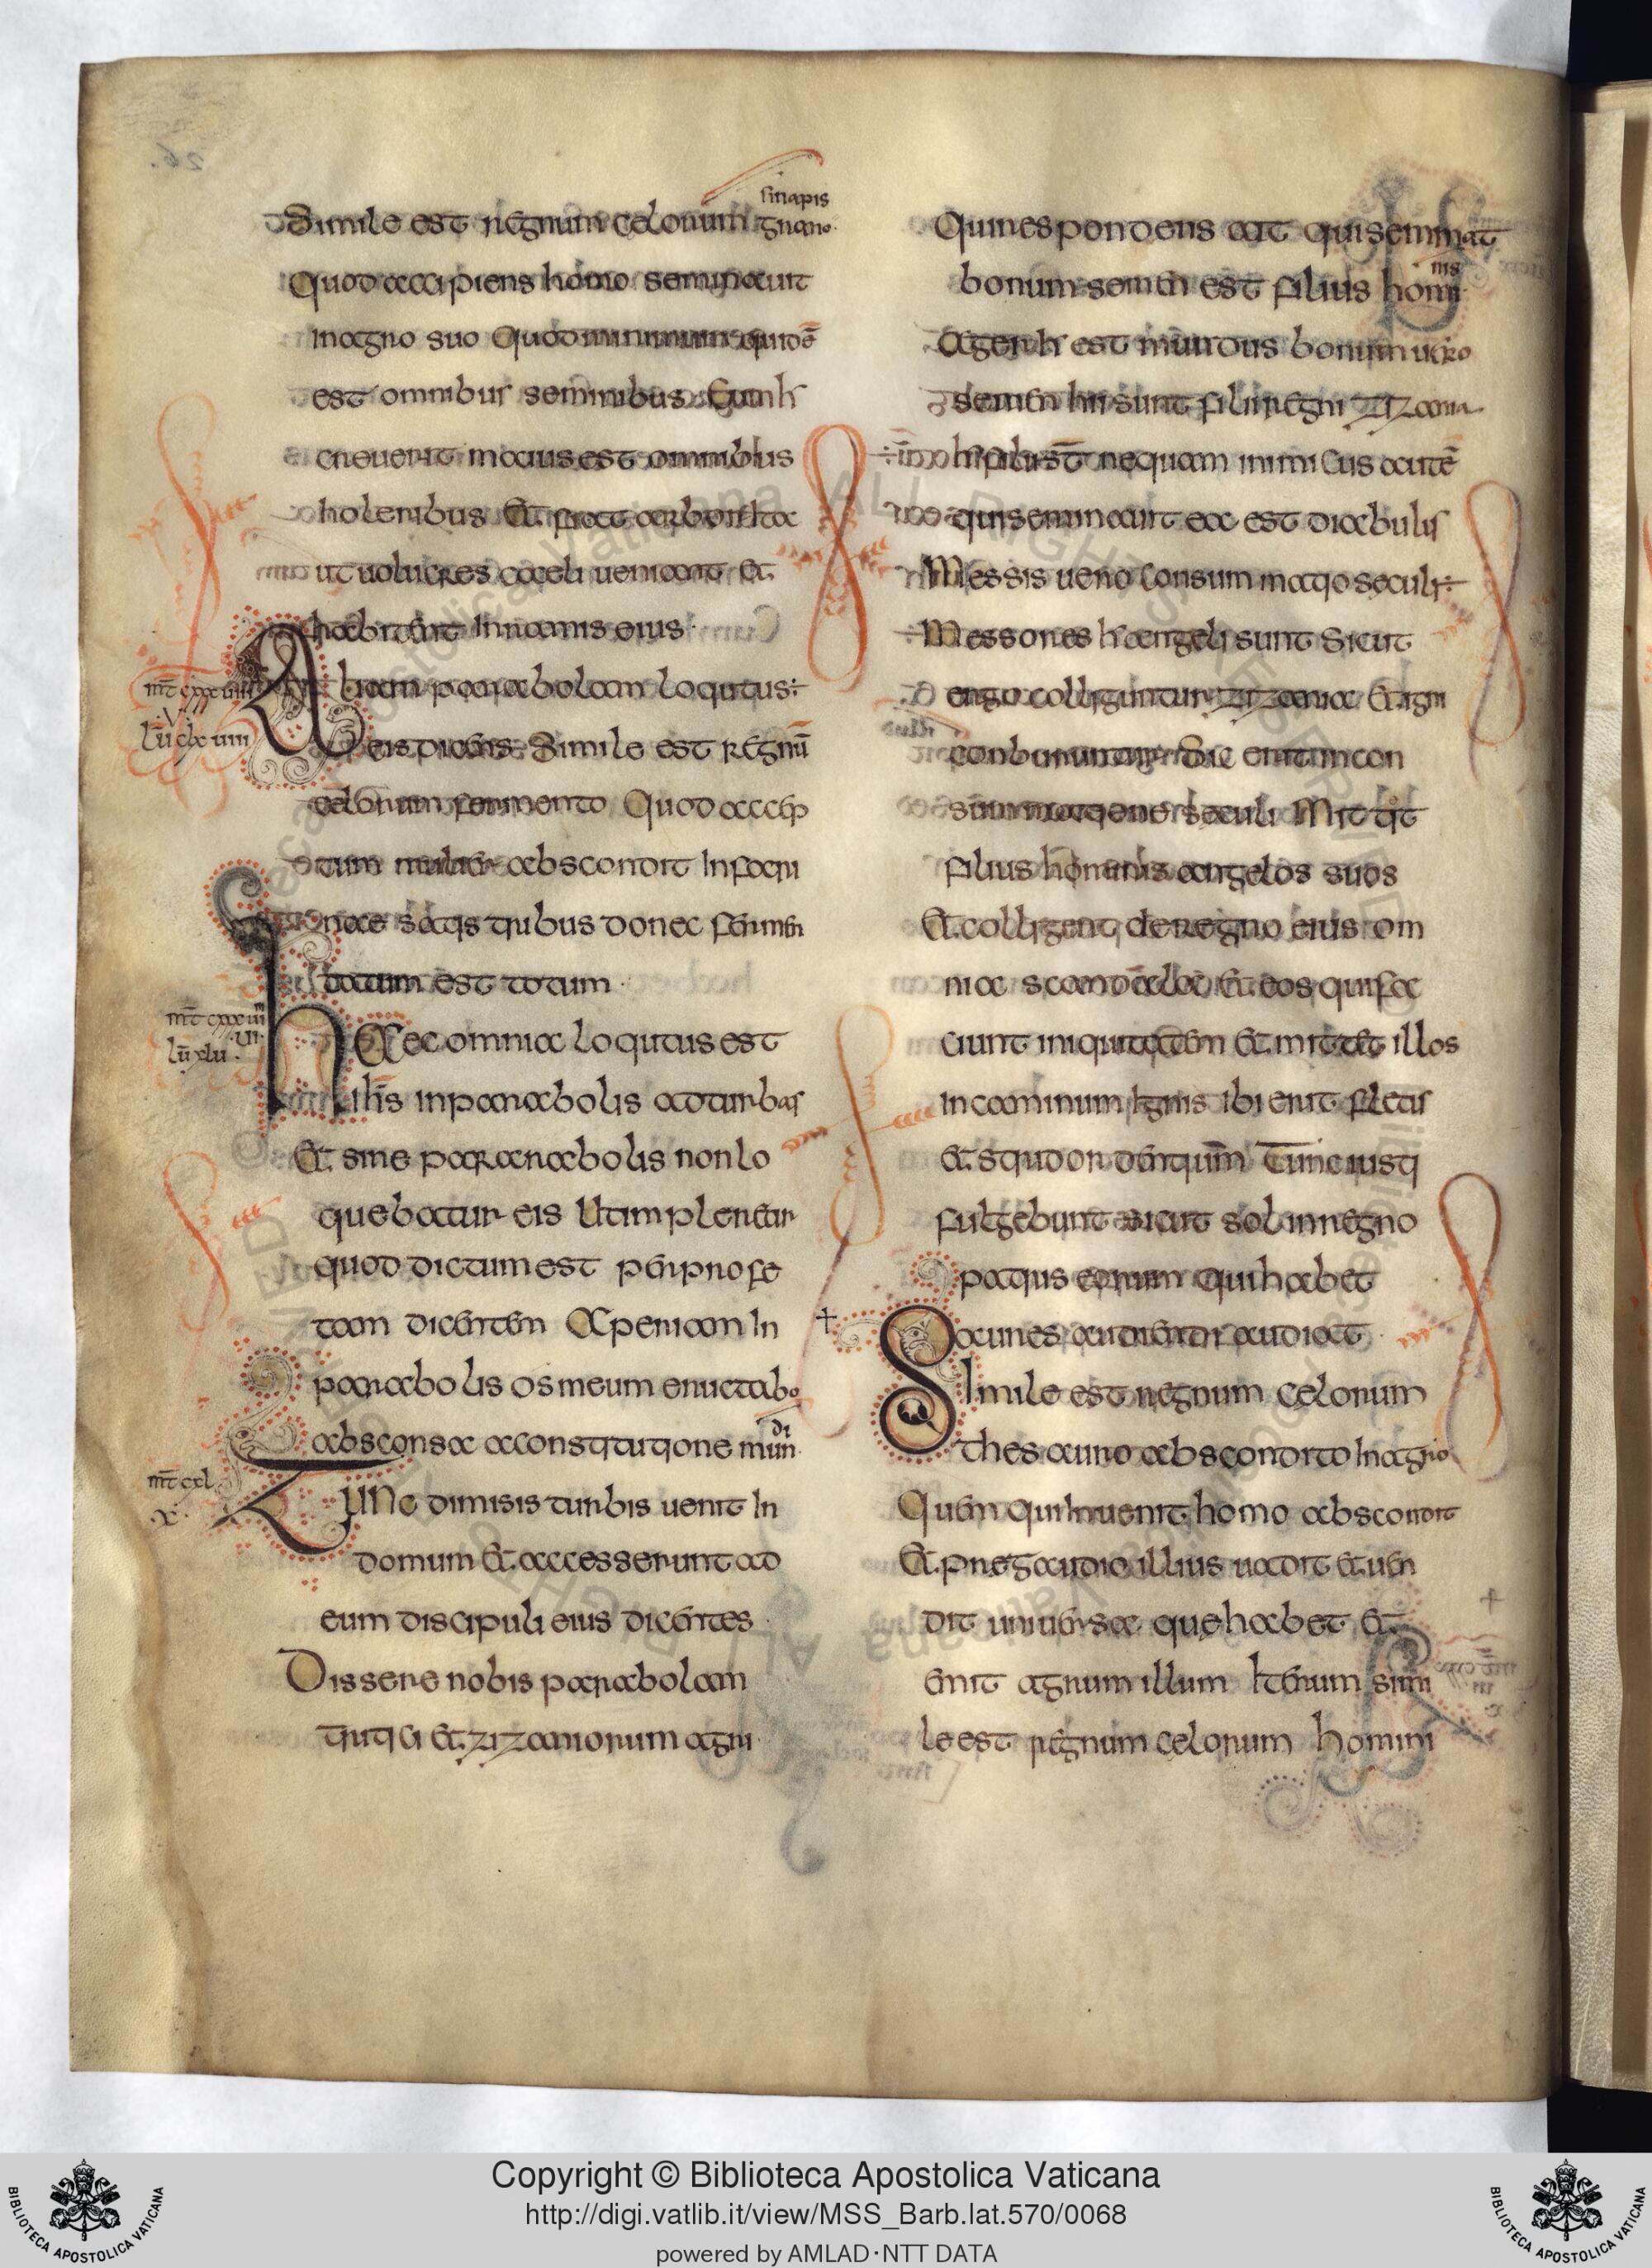 Simile est regnum celorum grano
sinapis
Quod accipiens homo seminauit
In agro suo Quod minimum quidē
est omnibus seminibus Cum
creuerit maius est omnibus
holeribus Et fiat arbor ita
ut uolucres caeli ueniant et
habitent In ramis eius
mt cxxxuiiii
V
lu clxuiiii
Aliam parabolam loqutus
eis dicens Simile est regnū
celorum fermento Quod accep
tum mulier abscondit In fari
nae satis tribus donec fermen
tatum est totum
mt cxxxuiii
ui
lu xlu
Haec omnia loqutus est
ihs in parabolis ad turbas
Et sine pararabolis non lo
quebatur eis Ut impleretur
quod dictum est per profe
tam dicentem Aperiam In
parabolis os meum eructabo
absconsa a constitutione mun
di
mt cxl
x
Tunc dimisis turbis uenit In
domum et accesserunt ad
eum discipuli eius dicentes
Dissere nobis parabolam
tritici et zizaniorum agri
Qui respondens ait qui seminat
bonum semen est filius homi
nis
Ager h est mundus bonum uero
semen hii sunt filii regni zizania
h filii sť nequam inimicus autē
qui seminauit ea est diabulus
Messis uero consummatio seculi
Messores h angeli sunt Sicut
ergo colliguntur zizania et igni
conburuntur Sic erit in con
summatione seculi Mittit
filius hominis angelos suos
Et colligent de regno eius om
nia scandala et eos qui fa
ciunt iniquitatem et mittet illos
in caminum ignis ibi erit fletus
et stridor dentium Tunc iusti
fulgebunt sicut sol in regno
patris eorum qui habet
aures audiendi audiat
Simile est regnum celorum
thesauro abscondito In agro
Quem qui Inuenit homo abscondit
Et pre gaudio illius uadit et uen
dit uniuersa que habet et
emit agrum illum Iterum simi
le est regnum celorum homini
Copyright © Biblioteca Apostolica Vaticana
http://digi.vatlib.it/view/MSS_Barb.lat.570/0068
powered by AMLAD·NTT DATA
BIBLIOTECA APOSTOLICA VATICANA
BIBLIOTECA APOSTOLICA VATICANA